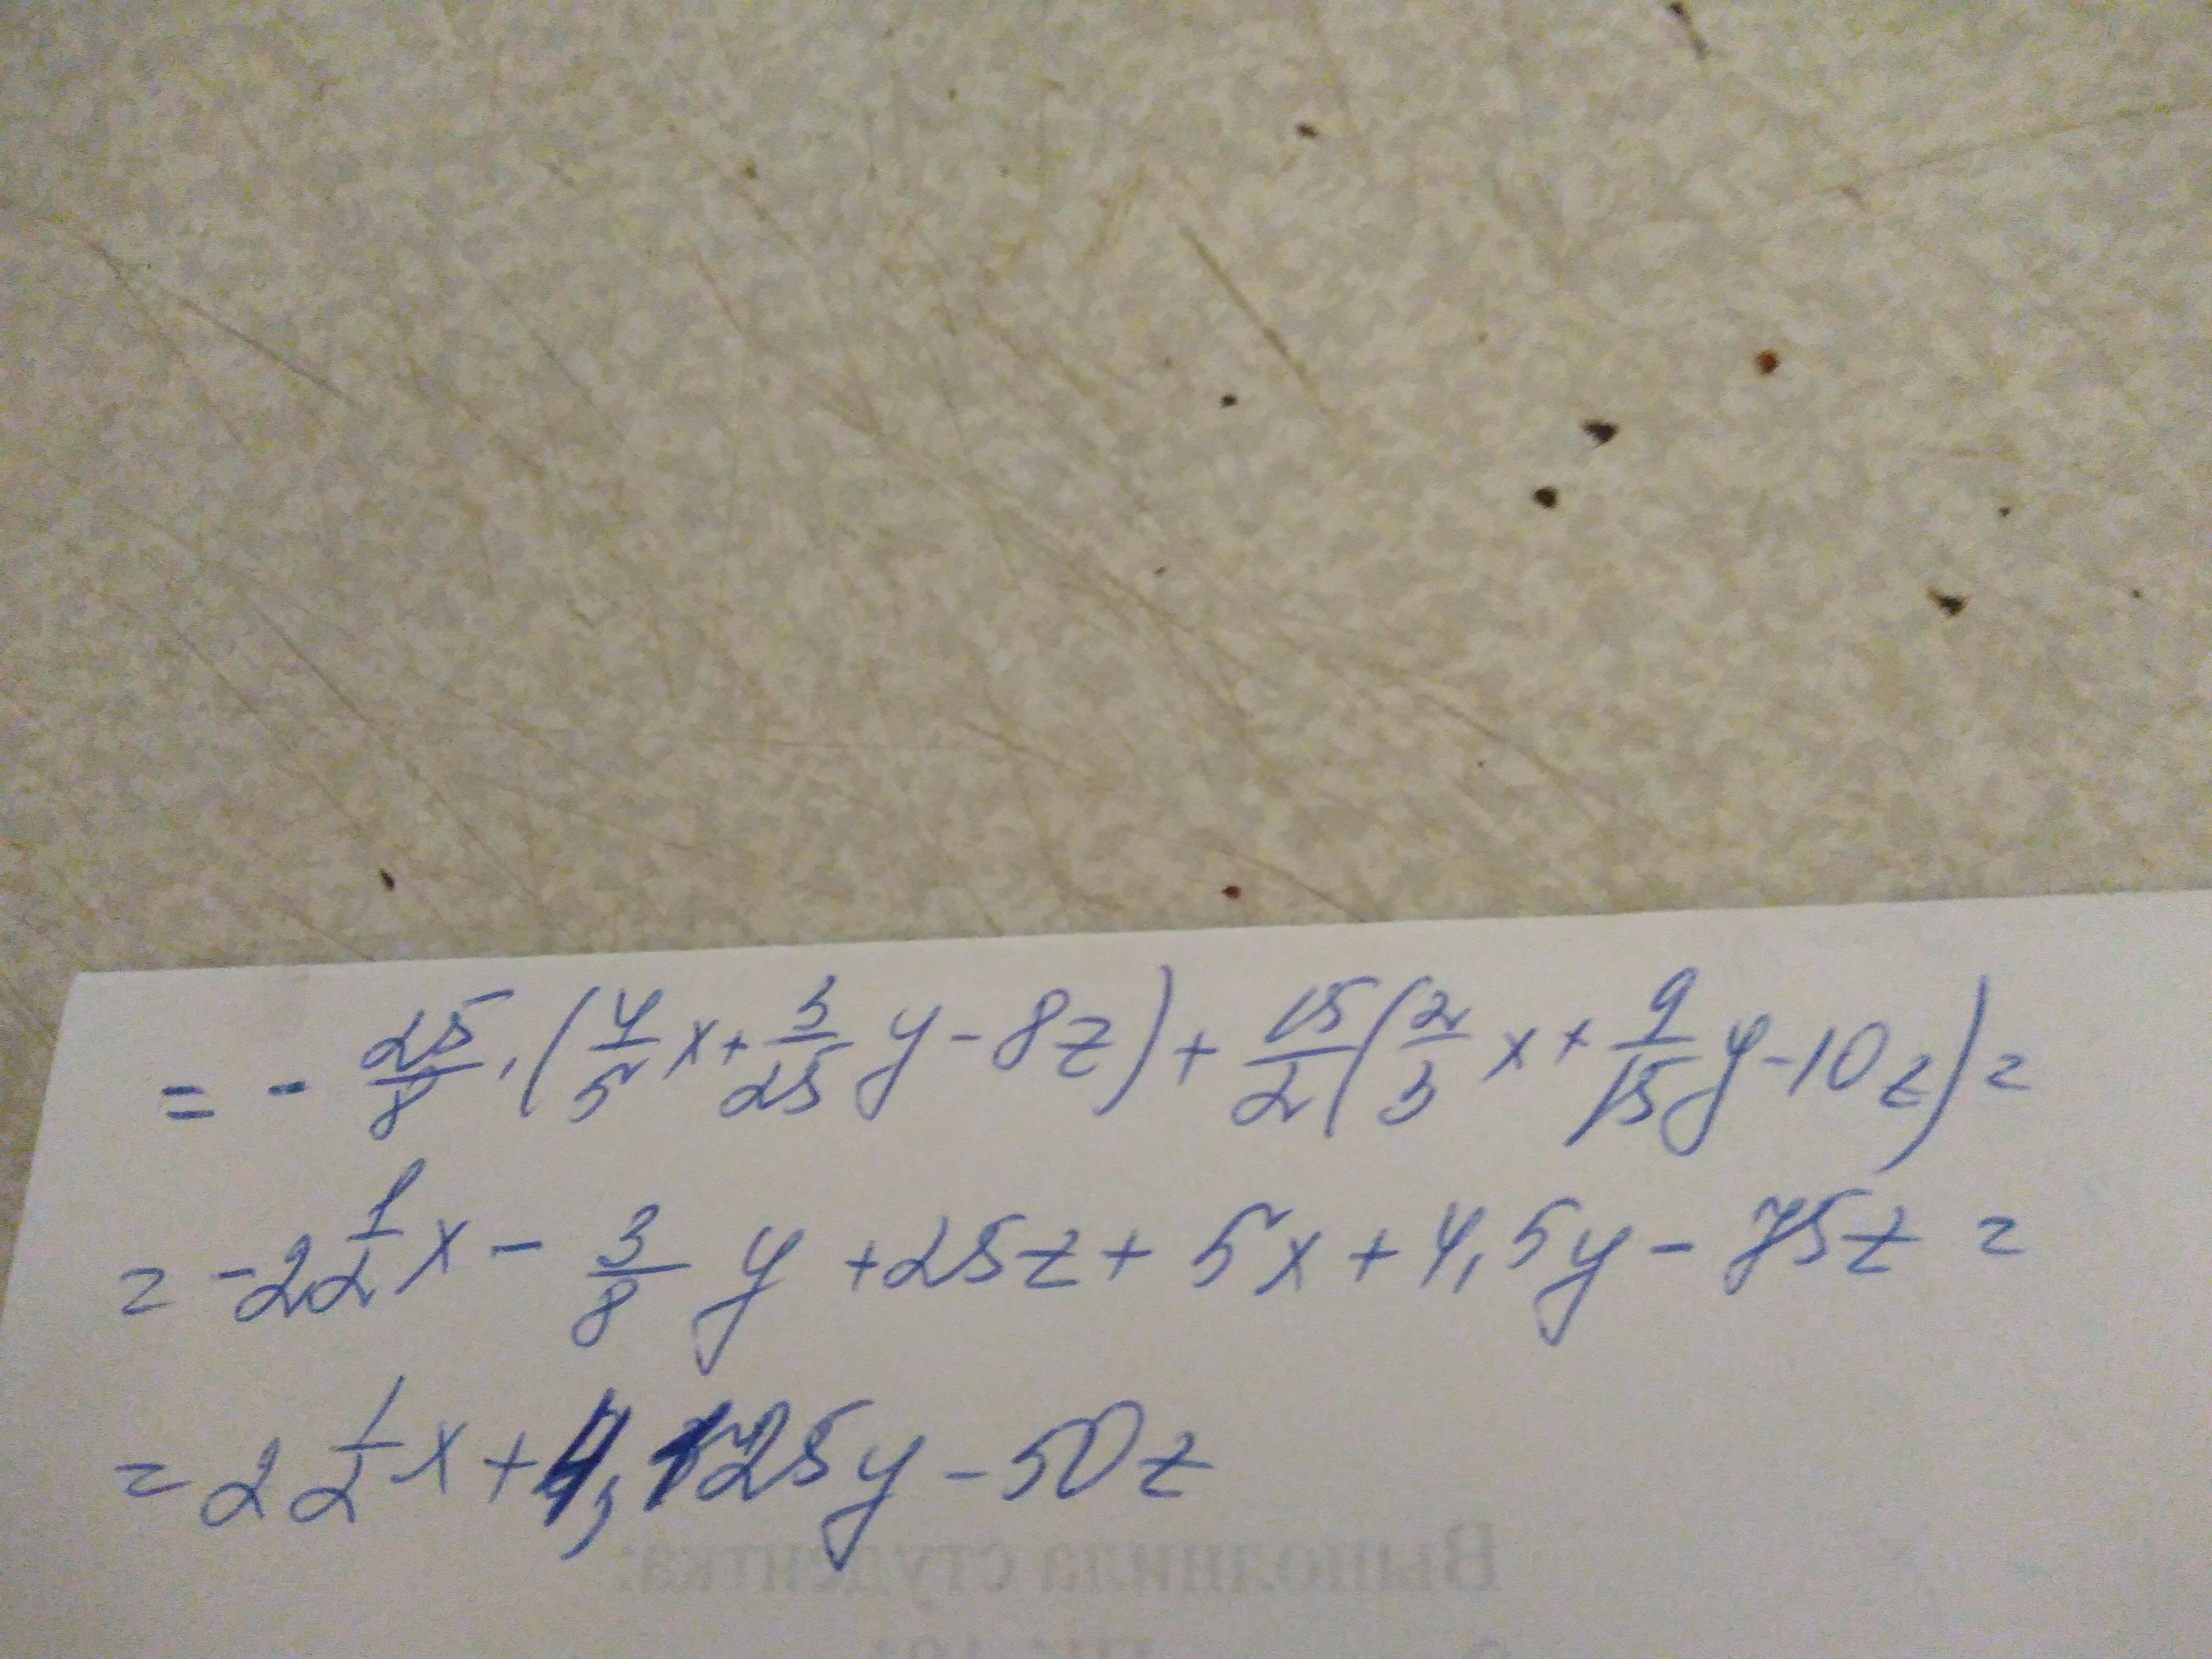 = - 25/8 · (4/5 x + 3/25 y - 8z) + 15/2 (2/3 x + 9/15 y - 10z) =
= -2 1/2 x - 3/8 y + 25z + 5x + 4,5y - 75z =
= 2 1/2 x + 4,125y - 50z
Выполнила студентка: